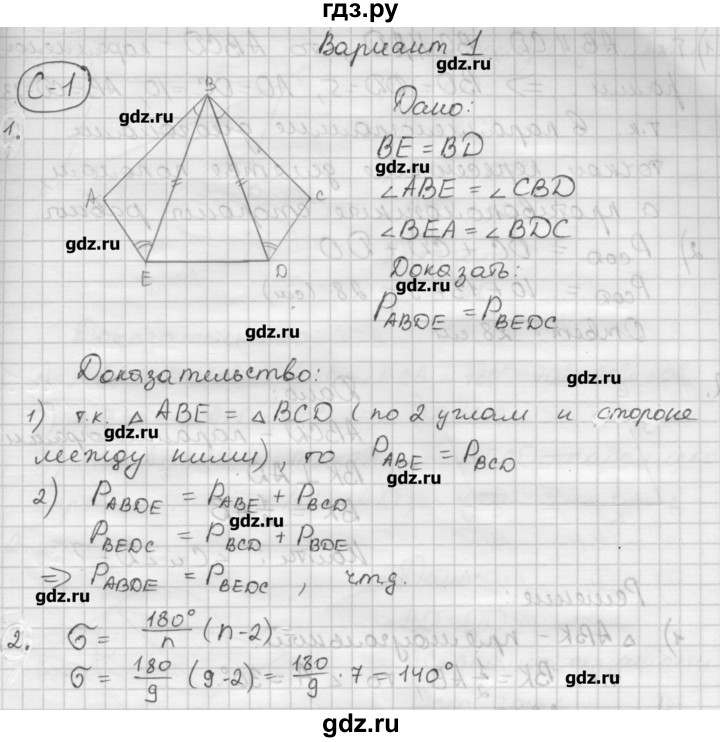 гдз.ру
Вариант 1
gdz.ru
С-1
1.
B
gdz.ru
Дано:
BE = BD
gdz.ru
A
C
∠ABE = ∠CBD
gdz.ru
∠BEA = ∠BDC
E
D
Доказать:
gdz.ru
P ABDE = P BEDC
gdz.ru
Доказательство:
gdz.ru
1) т.к. △ ABE = △ BCD (по 2 углам и стороне
gdz.ru
между ними), то P ABE = P BCD
gdz.ru
2) P ABDE = P ABE + P BCD
gdz.ru
P BEDC = P BCD + P BDE
=> P ABDE = P BEDC, чтд.
gdz.ru
2. σ = 180°/n (n-2)
σ = 180/9 (9-2) = 180/9 · 7 = 140°
gdz.ru
gdz.ru